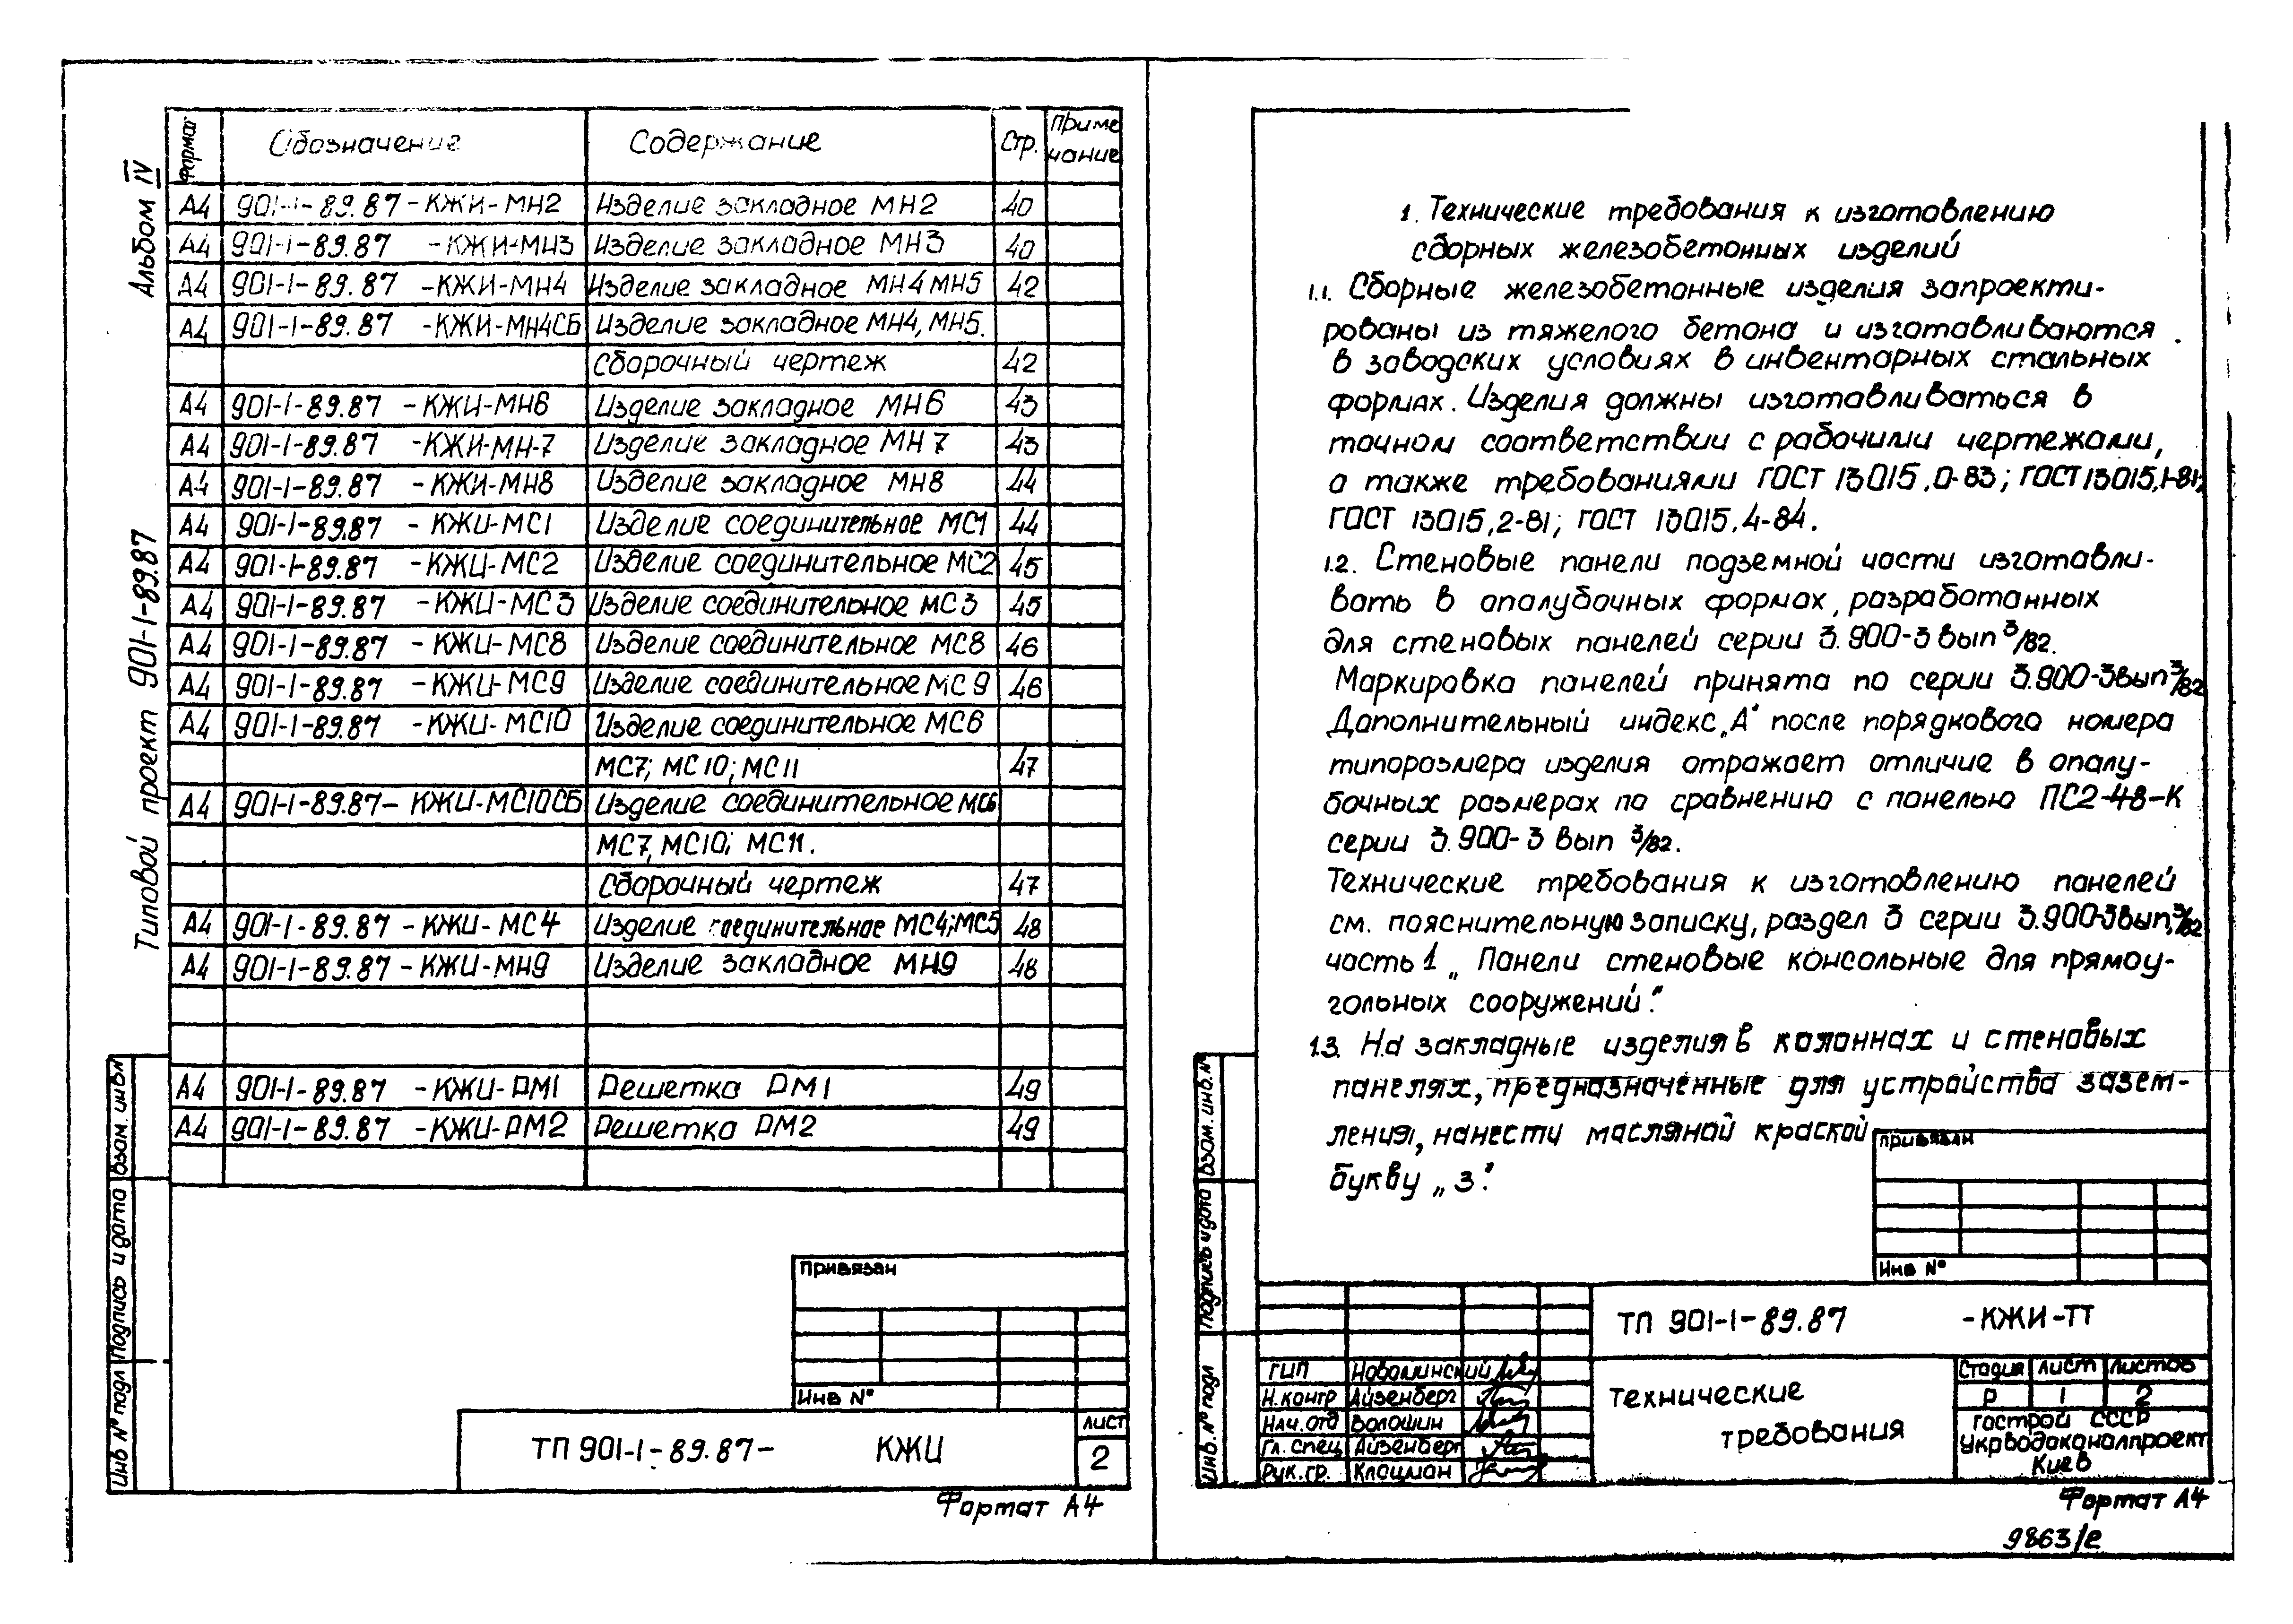 Альбом IV
Типовой проект 901-1-89.87
Формат Обозначение Содержание Стр. Приме чание
А4 901-1-89.87 -КЖИ-МН2 Изделие закладное МН2 40
А4 901-1-89.87 -КЖИ-МН3 Изделие закладное МН3 40
А4 901-1-89.87 -КЖИ-МН4 Изделие закладное МН4 МН5 42
А4 901-1-89.87 -КЖИ-МН4СБ Изделие закладное МН4, МН5.
Сборочный чертеж 42
А4 901-1-89.87 -КЖИ-МН6 Изделие закладное МН6 43
А4 901-1-89.87 -КЖИ-МН-7 Изделие закладное МН7 43
А4 901-1-89.87 -КЖИ-МН8 Изделие закладное МН8 44
А4 901-1-89.87 -КЖИ-МС1 Изделие соединительное МС1 44
А4 901-1-89.87 -КЖИ-МС2 Изделие соединительное МС2 45
А4 901-1-89.87 -КЖИ-МС3 Изделие соединительное МС3 45
А4 901-1-89.87 -КЖИ-МС8 Изделие соединительное МС8 46
А4 901-1-89.87 -КЖИ-МС9 Изделие соединительное МС9 46
А4 901-1-89.87 -КЖИ-МС10 Изделие соединительное МС6
МС7; МС10; МС11 47
А4 901-1-89.87- КЖИ-МС10СБ Изделие соединительное МС6
МС7, МС10; МС11.
Сборочный чертеж 47
А4 901-1-89.87 -КЖИ-МС4 Изделие соединительное МС4;МС5 48
А4 901-1-89.87 -КЖИ-МН9 Изделие закладное МН9 48
А4 901-1-89.87 -КЖИ-РМ1 Решетка РМ1 49
А4 901-1-89.87 -КЖИ-РМ2 Решетка РМ2 49
Взам. инв.№
Подпись и дата
Инв № подл
Привязан
Инв №
ТП 901-1-89.87- КЖИ
лист
2
Формат А4
1. Технические требования к изготовлению
сборных железобетонных изделий
1.1. Сборные железобетонные изделия запроекти-
рованы из тяжелого бетона и изготавливаются
в заводских условиях в инвентарных стальных
формах. Изделия должны изготавливаться в
точном соответствии с рабочими чертежами,
а также требованиями ГОСТ 13015.0-83; ГОСТ 13015.1-81;
ГОСТ 13015.2-81; ГОСТ 13015.4-84.
1.2. Стеновые панели подземной части изготавли-
вать в опалубочных формах, разработанных
для стеновых панелей серии 3.900-3 вып 3/82.
Маркировка панелей принята по серии 3.900-3 вып 3/82
Дополнительный индекс „А" после порядкового номера
типоразмера изделия отражает отличие в опалу-
бочных размерах по сравнению с панелью ПС2-48-К
серии 3.900-3 вып 3/82.
Технические требования к изготовлению панелей
см. пояснительную записку, раздел 3 серии 3.900-3 вып. 3/82
часть 1 „Панели стеновые консольные для прямоу-
гольных сооружений".
1.3. На закладные изделия в колоннах и стеновых
панелях, предназначенные для устройства зазем-
ления, нанести масляной краской
букву „З".
Взам. инв.№
Подпись и дата
Инв. № подл
Привязан
Инв №
ТП 901-1-89.87 -КЖИ-ТТ
ГИП Новоминский
Н.контр Айзенберг
Нач.отд Волошин
Гл. спец Айзенберг
Рук.гр. Клоцман
Технические
требования
Стадия лист листов
Р 1 2
Гострой СССР
Укрводоканалпроект
Киев
Формат А4
9863/2